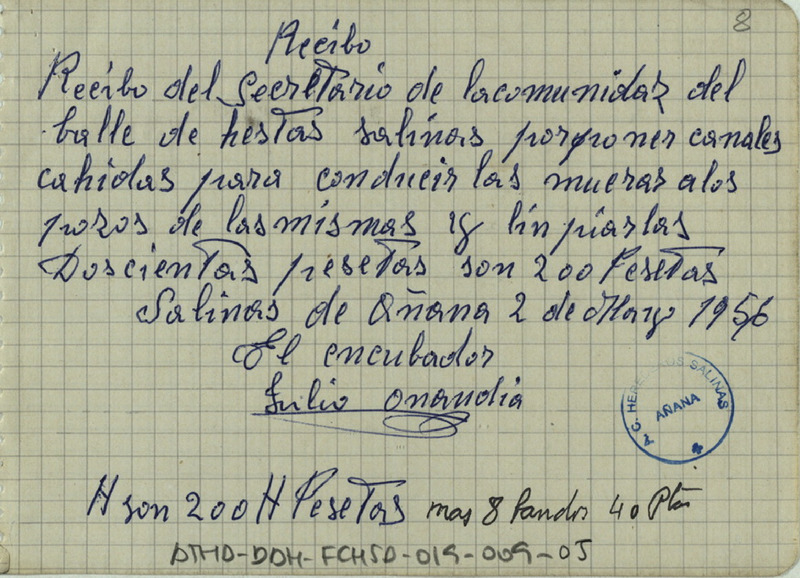 8
Recibo
Recibo del Secretario de lacomunidaz del
balle de hestas salinas porponer canales
cahidas para conducir las mueras alos
pozos de lasmismas y linpiarlas
Doscientas pesetas son 200 Pesetas
Salinas de Añana 2 de Mayo 1956
El encubador
Julio onandia
A.C. HEREDEROS SALINAS
AÑANA
H son 200 H Pesetas mas 8 bandos 40 Ptas
DTHD-DOH-FCHSD-019-009-05